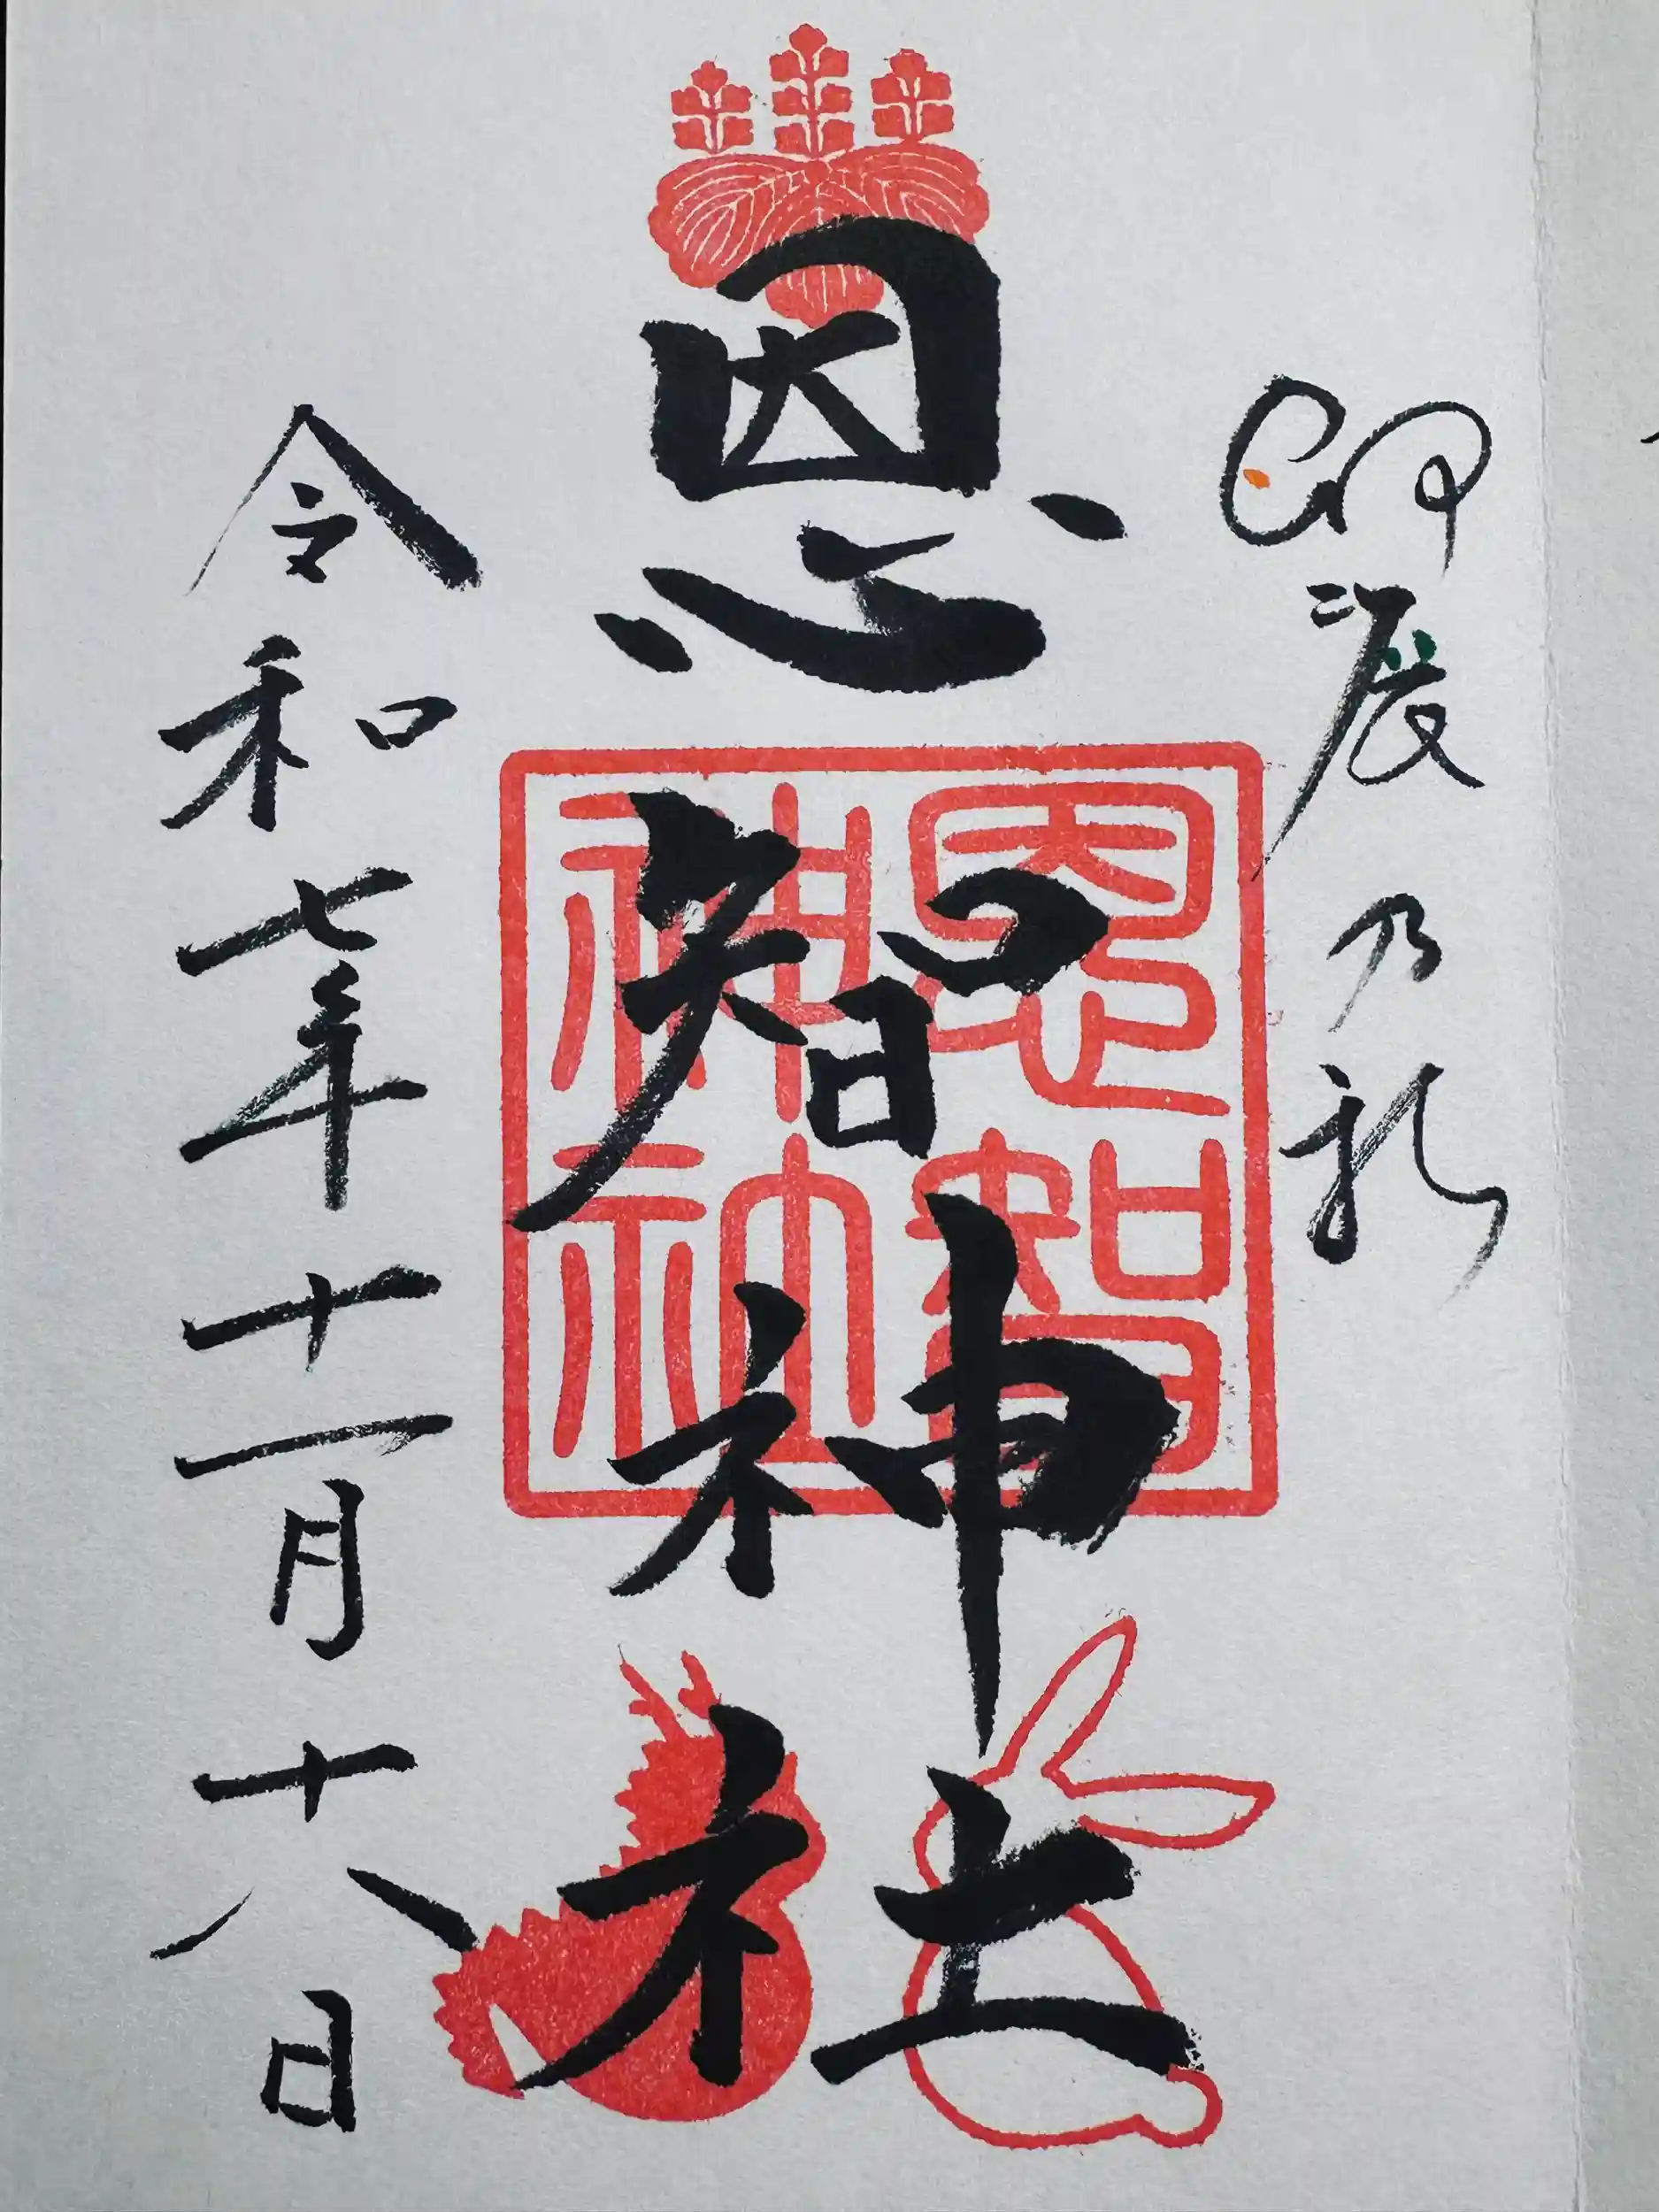 卯辰乃礼
恩智神社
恩智
神社
令和七年十一月十八日